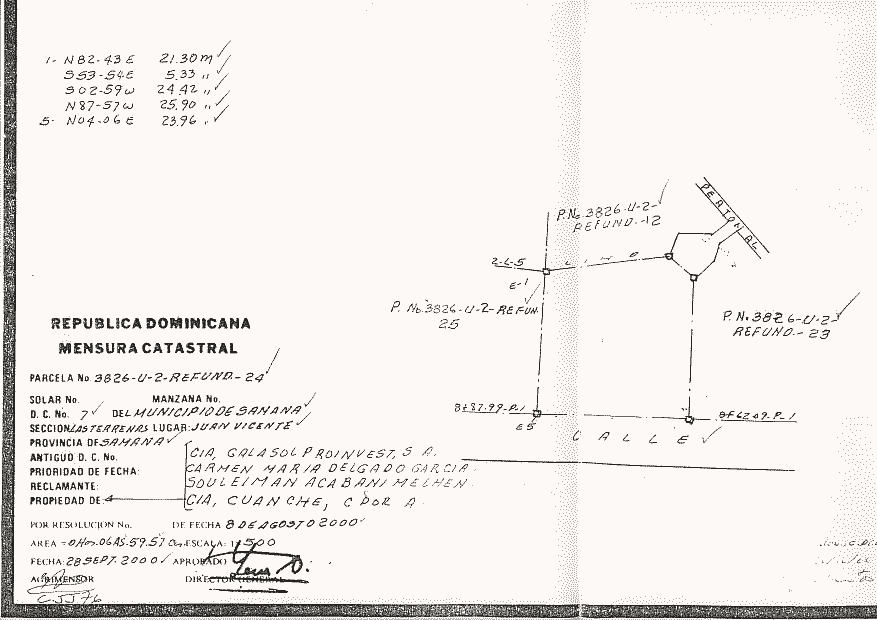 1- N82-43 E 21.30 m
S53-54E 5.33 "
S02-59W 24.42 "
N87-57W 25.90 "
5- N04-06 E 23.96 "
PEATONAL
P. No. 3826-U-2-
REFUND.-12
2-L-5
LINO
E-1
P. No. 3826-U-2-REFUN-
25
P. No. 3826-U-2-
REFUND.-23
REPUBLICA DOMINICANA
MENSURA CATASTRAL
PARCELA No. 3826-U-2-REFUND.-24
SOLAR No. MANZANA No.
D. C. No. 7 DEL MUNICIPIO DE SAMANA
SECCION LAS TERRENAS LUGAR: JUAN VICENTE
PROVINCIA DE SAMANA
ANTIGUO D. C. No.
PRIORIDAD DE FECHA:
RECLAMANTE:
PROPIEDAD DE:
CIA, GALASOL PROINVEST, S A.
CARMEN MARIA DELGADO GARCIA
SOULEIMAN ACABANI MELHEN
CIA, CUANCHE, C POR A
8+87.99-P-1
E5
CALLE
POR RESOLUCION No. DE FECHA 8 DE AGOSTO 2000
AREA = 0Has.06AS.59.57 ESCALA: 1:500
FECHA: 28 SEPT. 2000 APROBADO
AGRIMENSOR DIRECTOR GENERAL